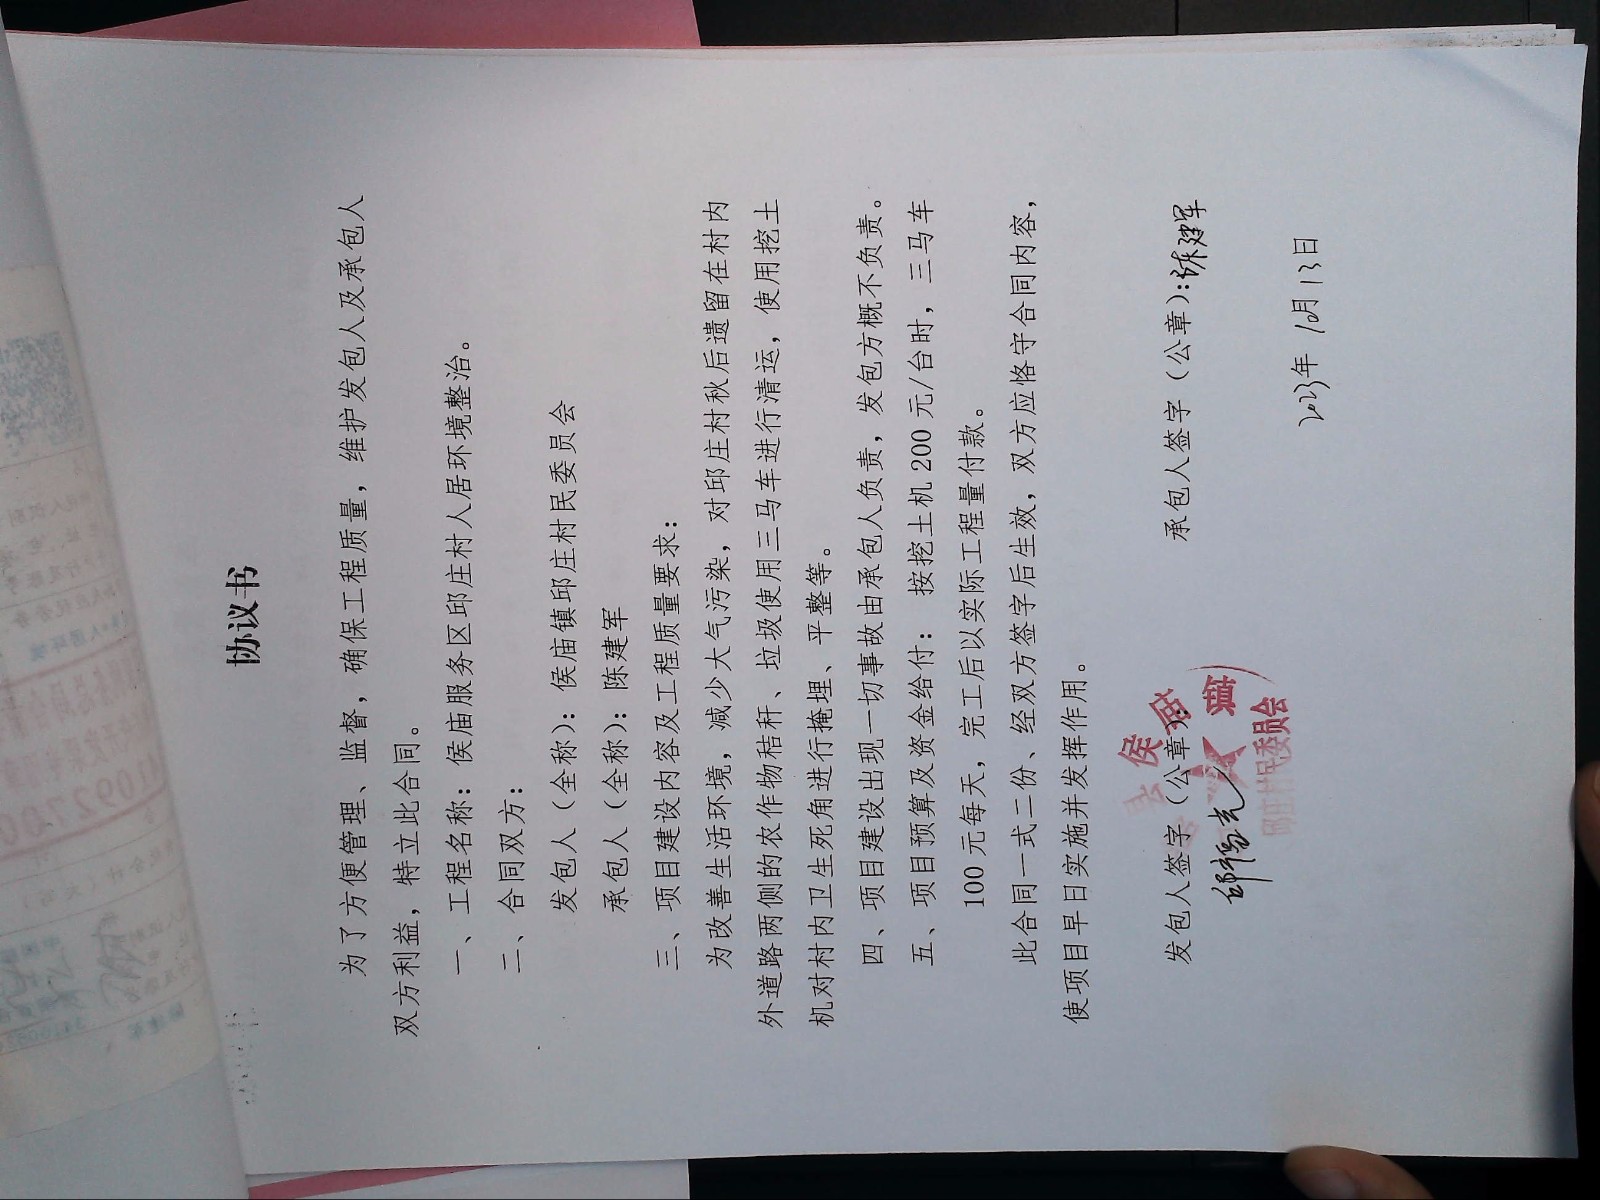 协议书
为了方便管理、监督，确保工程质量，维护发包人及承包人
双方利益，特立此合同。
一、工程名称：侯庙服务区邱庄村人居环境整治。
二、合同双方：
发包人（全称）：侯庙镇邱庄村民委员会
承包人（全称）：陈建军
三、项目建设内容及工程质量要求：
为改善生活环境，减少大气污染，对邱庄村秋后遗留在村内
外道路两侧的农作物秸秆、垃圾使用三马车进行清运，使用挖土
机对村内卫生死角进行掩埋、平整等。
四、项目建设出现一切事故由承包人负责，发包方概不负责。
五、项目预算及资金给付：按挖土机200元/台时，三马车
100元每天，完工后以实际工程量付款。
此合同一式二份、经双方签字后生效，双方应恪守合同内容，
使项目早日实施并发挥作用。
发包人签字（公章）： 承包人签字（公章）：陈建军
侯庙镇
邱庄村民委员会
2023年10月13日